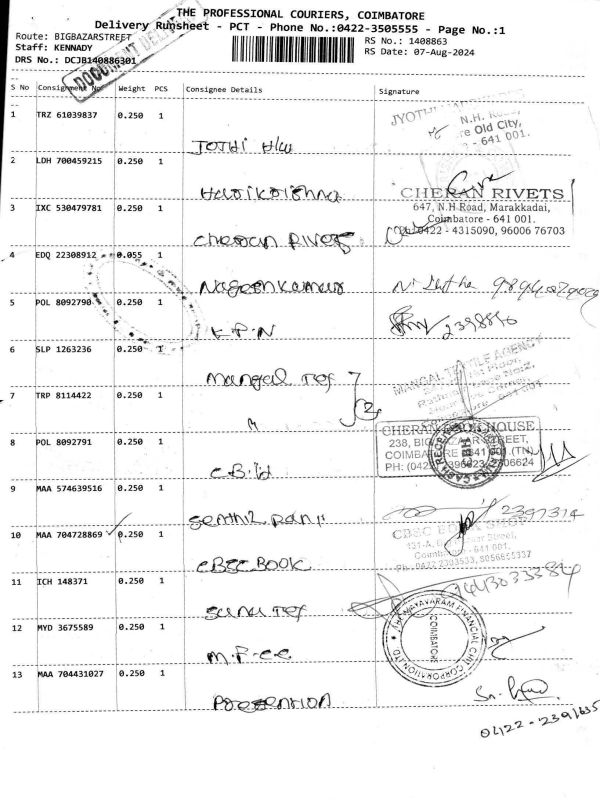 THE PROFESSIONAL COURIERS, COIMBATORE
Delivery Runsheet - PCT - Phone No.:0422-3505555 - Page No.:1
Route: BIGBAZARSTREET
Staff: KENNADY
DRS No.: DCJB140886301
RS No.: 1408863
RS Date: 07-Aug-2024
DOCUMENT DELIVERY
S No Consignment No Weight PCS Consignee Details Signature
1 TRZ 61039837 0.250 1
N.H. Road,
Old City,
- 641 001.
JOTHI H/W
2 LDH 700459215 0.250 1
Harikrishna
3 IXC 530479781 0.250 1
CHERAN RIVETS
647, N.H Road, Marakkadai,
Coimbatore - 641 001.
0422 - 4315090, 96006 76703
Cheran Rivets
4 EDQ 22308912 0.055 1
Nageenkumar
5 POL 8092790 0.250 1
2398896
K.P.N
6 SLP 1263236 0.250 1
MANGAL TEXTILE AGENCY
Mangal Tex
7 TRP 8114422 0.250 1
8 POL 8092791 0.250 1
CHERAN HOUSE
238, BIG BAZAAR STREET,
COIMBATORE 641 001.(TN)
C.B.H
9 MAA 574639516 0.250 1
Senthil Ranji
2397314
10 MAA 704728869 0.250 1
CBEC BOOK SHOP
Coimbatore - 641 001.
Ph: 0422 2393533, 9056655337
CBEC BOOK
11 ICH 148371 0.250 1
Sanu Tex
12 MYD 3675589 0.250 1
FINANCIAL
CORPORATION LTD
COIMBATORE
M.F.CC
13 MAA 704431027 0.250 1
0422-2391635